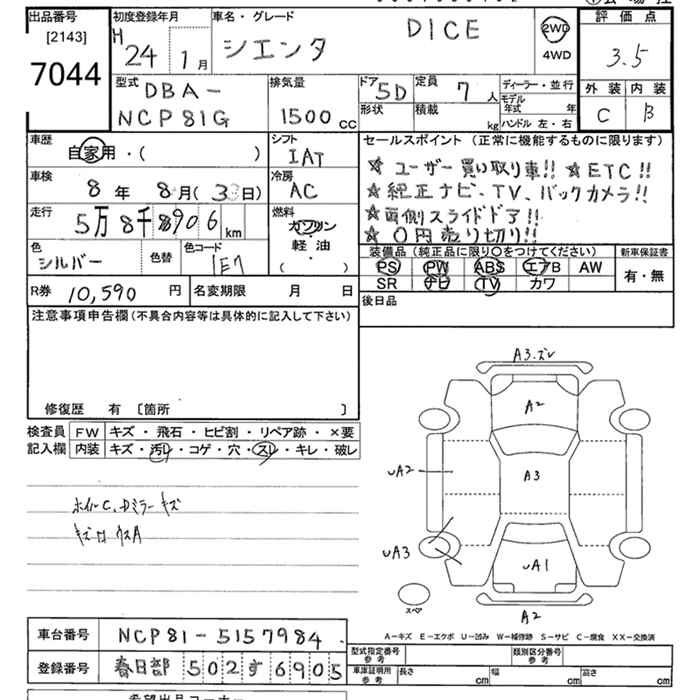 出品番号
[2143]
7044
初度登録年月
H
24 1月
車名・グレード
シエンタ DICE
2WD
4WD
評価点
3.5
外装 内装
C B
型式
DBA-
NCP81G
排気量
1500cc
ドア
5D
定員
7人
形状
積載
kg
ディーラー・並行
モデル年式
年
ハンドル 左・右
車歴
自家用・( )
シフト
IAT
車検
8年 8月(3日)
冷房
AC
走行
5万8千906km
燃料
ガソリン
軽油
( )
色
シルバー
色替
色コード
1E7
R券 10,590円
名変期限 月 日
セールスポイント(正常に機能するものに限ります)
☆ユーザー買い取り車!! ☆ETC!!
☆純正ナビ、TV、バックカメラ!!
☆両側スライドドア!!
☆0円売り切り!!
装備品(純正品に限り○をつけてください)
PS PW ABS エアB AW
SR ナビ TV カワ
新車保証書
有・無
後日品
注意事項申告欄(不具合内容等は具体的に記入して下さい)
修復歴 有 [箇所 ]
検査員
記入欄
FW キズ・飛石・ヒビ割・リペア跡・×要
内装 キズ・汚レ・コゲ・穴・スレ・キレ・破レ
ホイルC、Dミラーキズ
A3.ズレ
A2
A3
UA2
UA3
UA1
A2
スペア
A-キズ E-エクボ U-凹み W-補修跡 S-サビ C-腐食 XX-交換済
車台番号 NCP81-5157984
登録番号 春日部502す6905
型式指定番号
参考
類別区分番号
参考
車庫証明用
参考
長さ cm 幅 cm 高さ cm